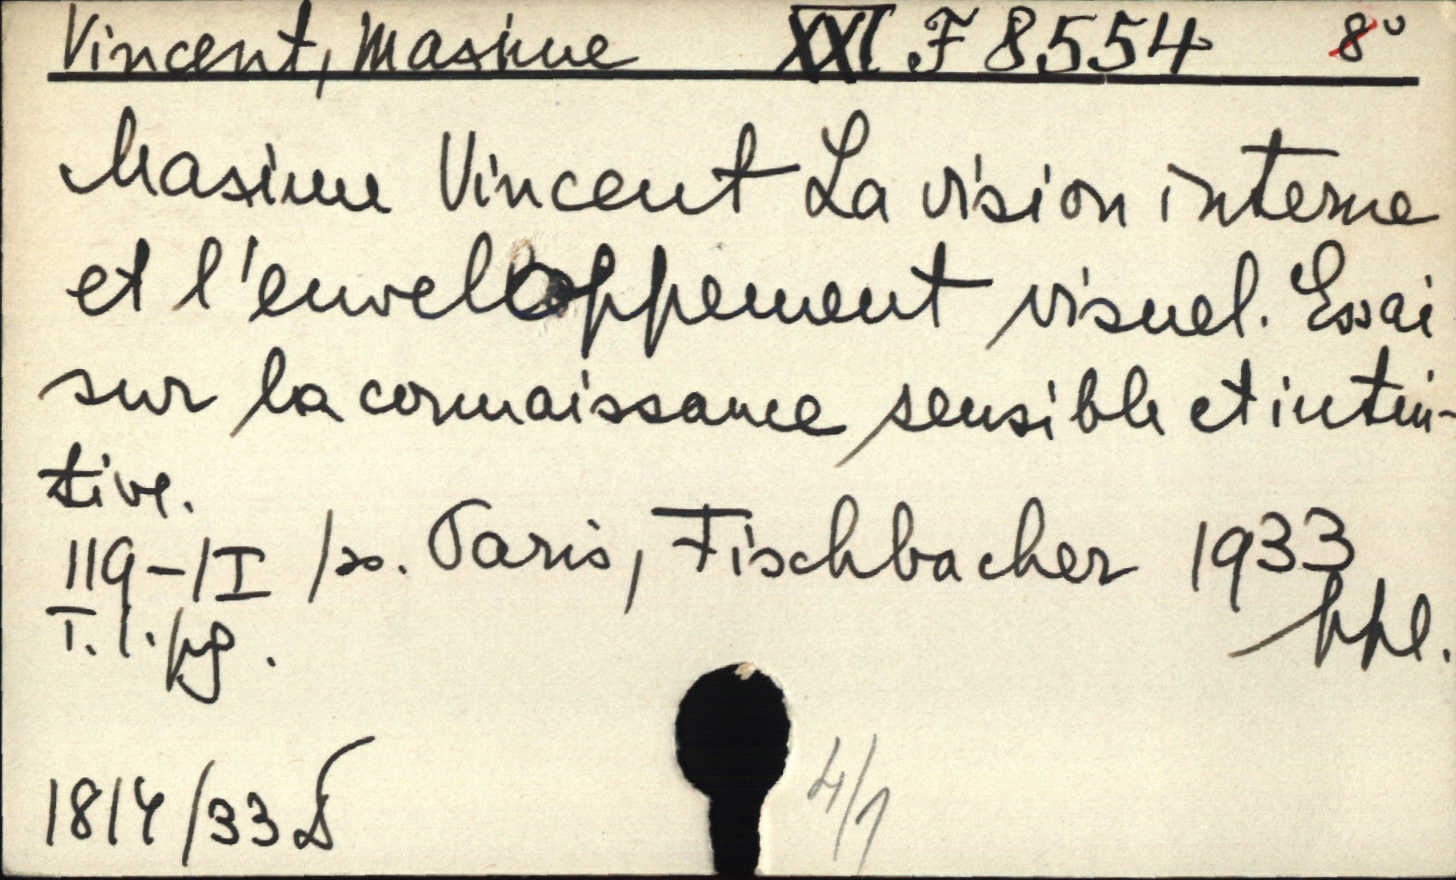 Vincent, Maxime XXI F 8554 8°
Maxime Vincent La vision interne
et l'enveloppement visuel. Essai
sur la connaissance sensible et intui-
tive.
119-1I /s. Paris, Fischbacher 1933
T. l. pg. ppl.
1814/33 D
4/1